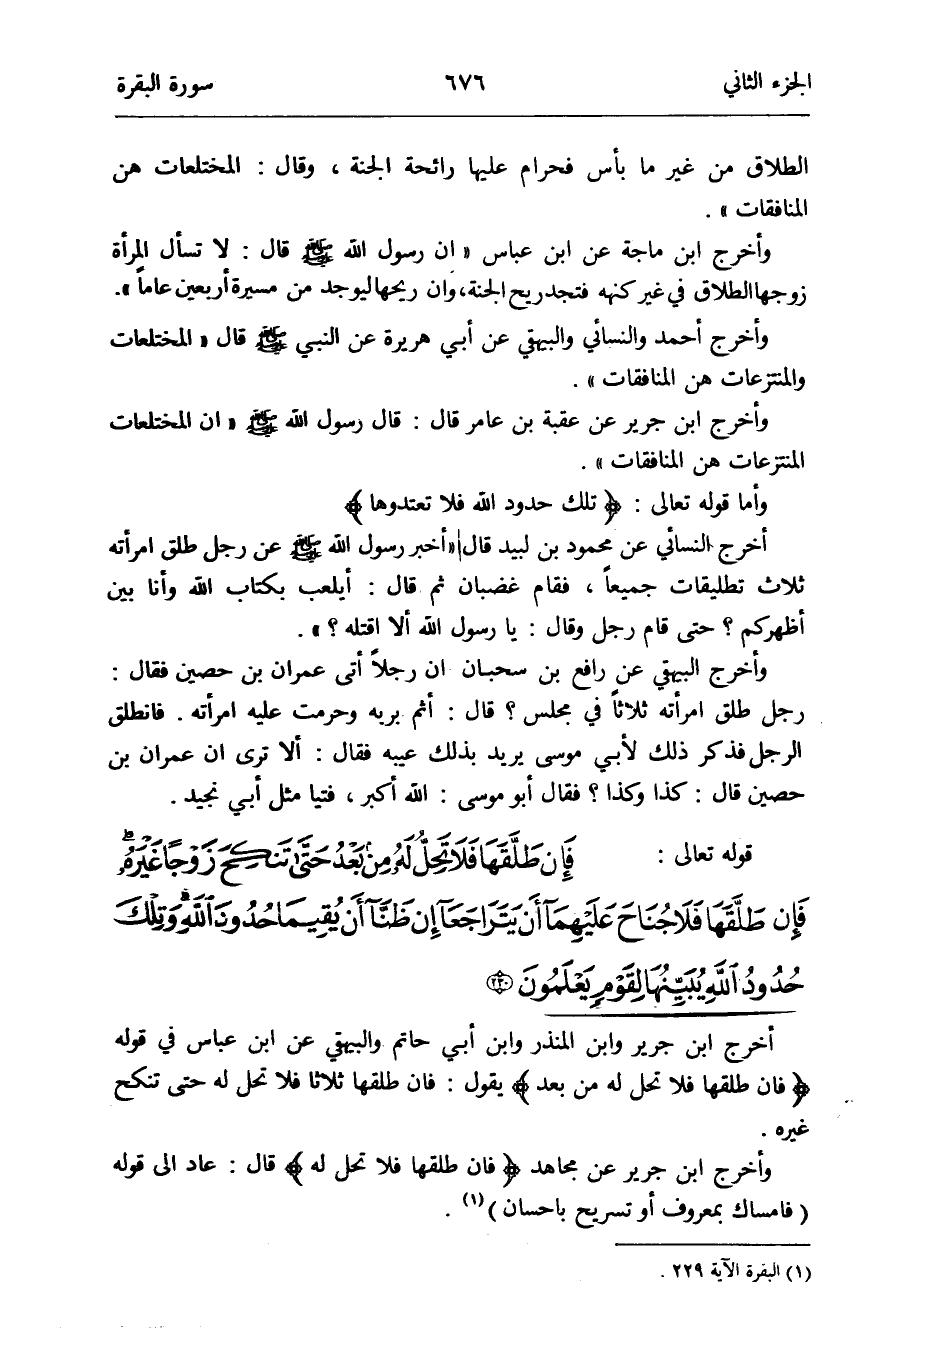 الجزء الثاني ٦٧٦ سورة البقرة
الطلاق من غير ما بأس فحرام عليها رائحة الجنة ، وقال : المختلعات هن
المنافقات » .
وأخرج ابن ماجة عن ابن عباس « ان رسول الله ﷺ قال : لا تسأل المرأة
زوجها الطلاق في غير كنهه فتجد ريح الجنة ، وان ريحها ليوجد من مسيرة أربعين عاماً » .
وأخرج أحمد والنسائي والبيهقي عن أبي هريرة عن النبي ﷺ قال « المختلعات
والمنتزعات هن المنافقات » .
وأخرج ابن جرير عن عقبة بن عامر قال : قال رسول الله ﷺ « ان المختلعات
المنتزعات هن المنافقات » .
وأما قوله تعالى : ﴿ تلك حدود الله فلا تعتدوها ﴾
أخرج النسائي عن محمود بن لبيد قال « أخبر رسول الله ﷺ عن رجل طلق امرأته
ثلاث تطليقات جميعاً ، فقام غضبان ثم قال : أيلعب بكتاب الله وأنا بين
أظهركم ؟ حتى قام رجل وقال : يا رسول الله ألا اقتله ؟ » .
وأخرج البيهقي عن رافع بن سحبان ان رجلاً أتى عمران بن حصين فقال :
رجل طلق امرأته ثلاثاً في مجلس ؟ قال : أثم بربه وحرمت عليه امرأته . فانطلق
الرجل فذكر ذلك لأبي موسى يريد بذلك عيبه فقال : ألا ترى ان عمران بن
حصين قال : كذا وكذا ؟ فقال أبو موسى : الله أكبر ، فتيا مثل أبي نجيد .
قوله تعالى : فَإِن طَلَّقَهَا فَلَا تَحِلُّ لَهُۥ مِنۢ بَعْدُ حَتَّىٰ تَنكِحَ زَوْجًا غَيْرَهُۥ ۗ
فَإِن طَلَّقَهَا فَلَا جُنَاحَ عَلَيْهِمَآ أَن يَتَرَاجَعَآ إِن ظَنَّآ أَن يُقِيمَا حُدُودَ ٱللَّهِ ۗ وَتِلْكَ
حُدُودُ ٱللَّهِ يُبَيِّنُهَا لِقَوْمٍ يَعْلَمُونَ ﴿٢٣٠﴾
أخرج ابن جرير وابن المنذر وابن أبي حاتم والبيهقي عن ابن عباس في قوله
﴿ فان طلقها فلا تحل له من بعد ﴾ يقول : فان طلقها ثلاثا فلا تحل له حتى تنكح
غيره .
وأخرج ابن جرير عن مجاهد ﴿ فان طلقها فلا تحل له ﴾ قال : عاد الى قوله
( فامساك بمعروف أو تسريح باحسان ) (١) .
(١) البقرة الآية ٢٢٩ .